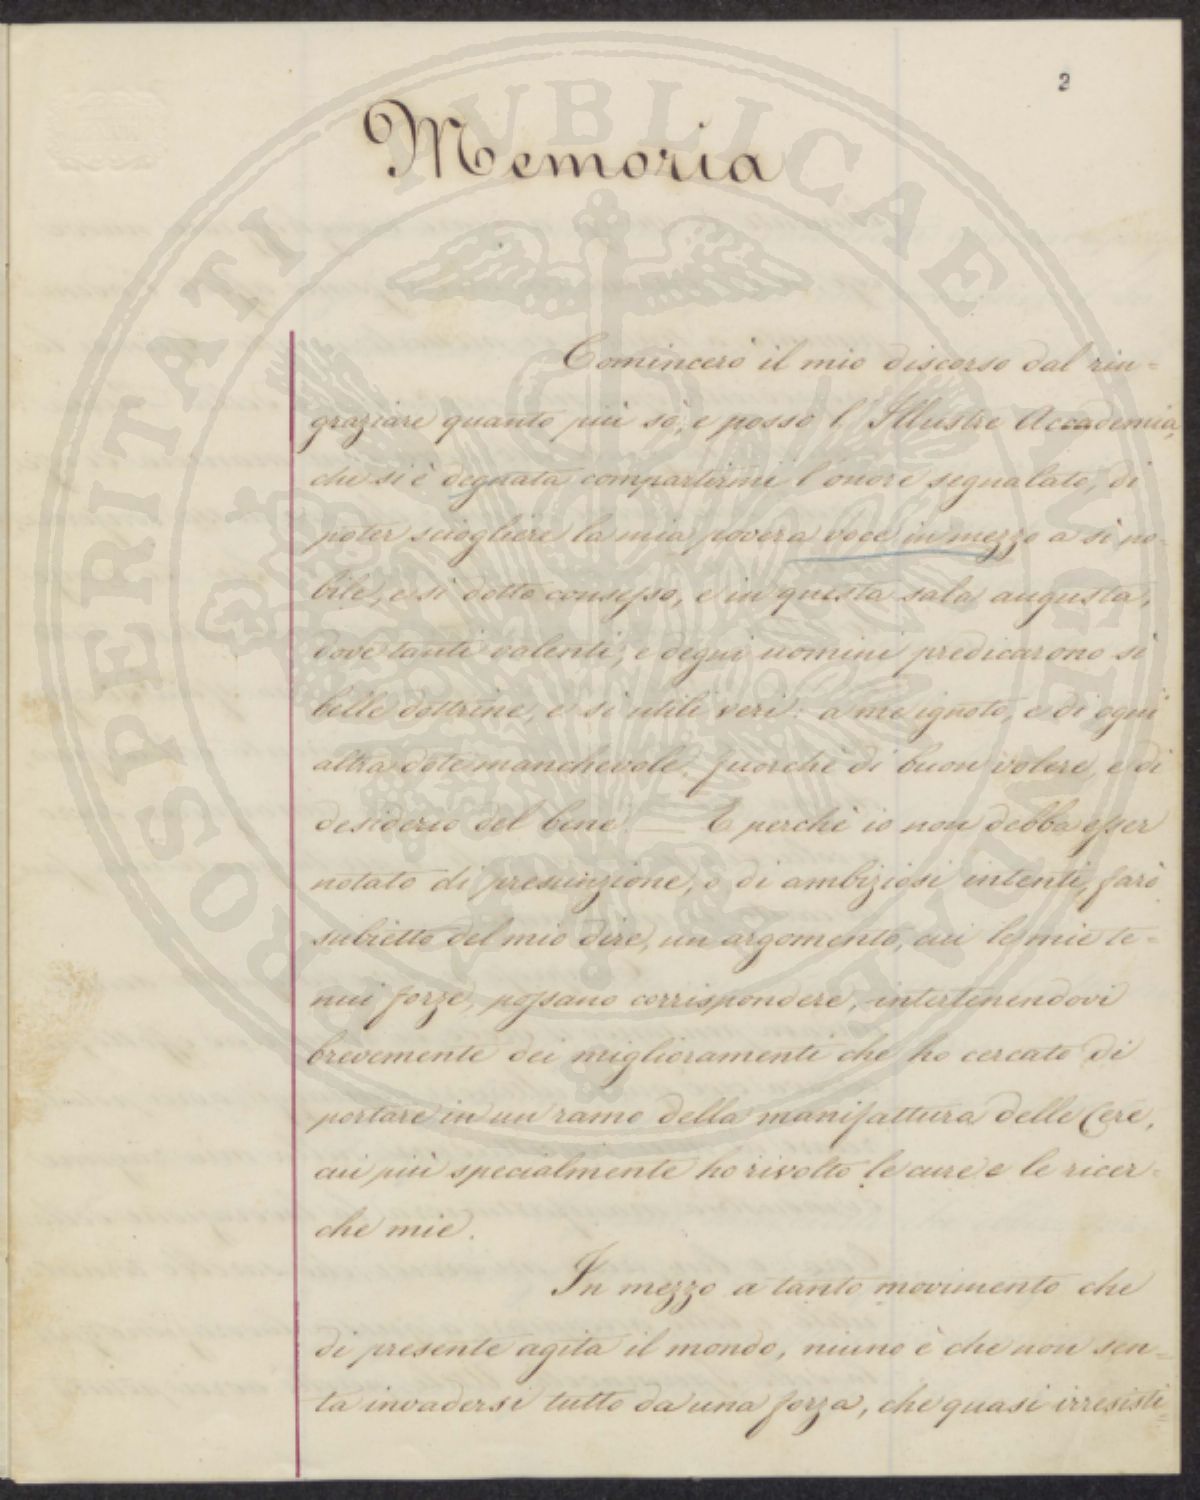 2
Memoria
Comincerò il mio discorso dal rin=
graziare quanto più sò, e posso l'Illustre Accademia,
che si è degnata compartirmi l'onore segnalato, di
poter sciogliere la mia povera voce in mezzo a sì no=
bile, e sì dotto consesso, e in questa sala augusta,
dove tanti valenti, e degni uomini predicarono sì
belle dottrine, e sì utili veri: a me ignoto, e di ogni
altra dote manchevole, fuorchè di buon volere, e di
desiderio del bene. — E perchè io non debba esser
notato di presunzione, o di ambiziosi intenti, farò
subietto del mio dire, un argomento, cui le mie te=
nui forze, possano corrispondere, intertenendovi
brevemente dei miglioramenti che ho cercato di
portare in un ramo della manifattura delle Cere,
cui più specialmente ho rivolto le cure e le ricer=
che mie.
In mezzo a tanto movimento che
di presente agita il mondo, niuno è che non sen=
ta invadersi tutto da una forza, che quasi irresisti=
PROSPERITATI PUBLICAE AUGENDAE